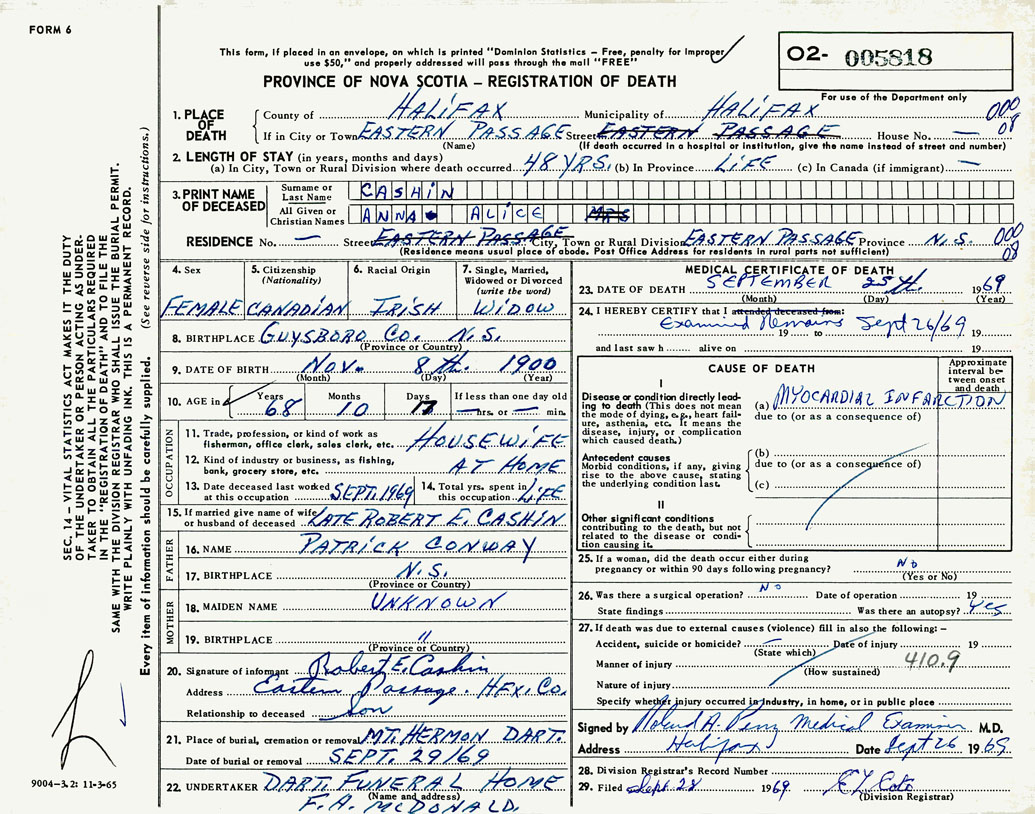 FORM 6
This form, if placed in an envelope, on which is printed "Dominion Statistics – Free, penalty for improper
use $50," and properly addressed will pass through the mail "FREE"
PROVINCE OF NOVA SCOTIA – REGISTRATION OF DEATH
O2- 005818
For use of the Department only
1. PLACE OF DEATH
County of HALIFAX Municipality of HALIFAX 000
If in City or Town EASTERN PASSAGE Street EASTERN PASSAGE House No. — 08
(Name) (If death occurred in a hospital or institution, give the name instead of street and number)
2. LENGTH OF STAY (in years, months and days)
(a) In City, Town or Rural Division where death occurred 48 YRS. (b) In Province LIFE (c) In Canada (if immigrant) —
3. PRINT NAME OF DECEASED
Surname or Last Name CASHIN
All Given or Christian Names ANNA ALICE MRS
RESIDENCE No. — Street EASTERN PASSAGE City, Town or Rural Division EASTERN PASSAGE Province N.S. 000
(Residence means usual place of abode. Post Office Address for residents in rural parts not sufficient) 08
4. Sex 5. Citizenship (Nationality) 6. Racial Origin 7. Single, Married, Widowed or Divorced (write the word)
FEMALE CANADIAN IRISH WIDOW
8. BIRTHPLACE GUYSBORO CO. N.S.
(Province or Country)
9. DATE OF BIRTH NOV. 8th. 1900
(Month) (Day) (Year)
10. AGE in Years Months Days If less than one day old
68 10 17 — hrs. or — min.
OCCUPATION
11. Trade, profession, or kind of work as
fisherman, office clerk, sales clerk, etc. HOUSEWIFE
12. Kind of industry or business, as fishing,
bank, grocery store, etc. AT HOME
13. Date deceased last worked
at this occupation SEPT. 1969
14. Total yrs. spent in
this occupation LIFE
15. If married give name of wife
or husband of deceased LATE ROBERT E. CASHIN
FATHER
16. NAME PATRICK CONWAY
17. BIRTHPLACE N.S.
(Province or Country)
MOTHER
18. MAIDEN NAME UNKNOWN
19. BIRTHPLACE "
(Province or Country)
20. Signature of informant Robert E. Cashin
Address Eastern Passage. HFX. Co.
Relationship to deceased Son
21. Place of burial, cremation or removal MT. HERMON DART.
Date of burial or removal SEPT. 29/69
22. UNDERTAKER DART. FUNERAL HOME
(Name and address)
F. A. McDONALD.
MEDICAL CERTIFICATE OF DEATH
23. DATE OF DEATH SEPTEMBER 25th 1969
(Month) (Day) (Year)
24. I HEREBY CERTIFY that I attended deceased from:
Examined Remains Sept 26/69
19 to 19
and last saw h alive on 19
CAUSE OF DEATH
Approximate interval between onset and death
I
Disease or condition directly leading to death (This does not mean the mode of dying, e.g., heart failure, asthenia, etc. It means the disease, injury, or complication which caused death.)
(a) MYOCARDIAL INFARCTION
due to (or as a consequence of)
Antecedent causes
Morbid conditions, if any, giving rise to the above cause, stating the underlying condition last.
(b)
due to (or as a consequence of)
(c)
II
Other significant conditions
contributing to the death, but not related to the disease or condition causing it.
25. If a woman, did the death occur either during
pregnancy or within 90 days following pregnancy? No
(Yes or No)
26. Was there a surgical operation? No Date of operation 19
State findings Was there an autopsy? Yes
27. If death was due to external causes (violence) fill in also the following: –
Accident, suicide or homicide? — Date of injury 19
(State which)
Manner of injury 410.9
(How sustained)
Nature of injury
Specify whether injury occurred in industry, in home, or in public place
Signed by Roland A. Perry Medical Examiner M.D.
Address Halifax Date Sept 26 1969
28. Division Registrar's Record Number
29. Filed Sept. 28 1969
(Division Registrar)
SEC. 14 – VITAL STATISTICS ACT MAKES IT THE DUTY
OF THE UNDERTAKER OR PERSON ACTING AS UNDER-
TAKER TO OBTAIN ALL THE PARTICULARS REQUIRED
IN THE "REGISTRATION OF DEATH" AND TO FILE THE
SAME WITH THE DIVISION REGISTRAR WHO SHALL ISSUE THE BURIAL PERMIT.
WRITE PLAINLY WITH UNFADING INK. THIS IS A PERMANENT RECORD.
Every item of information should be carefully supplied. (See reverse side for instructions.)
9004-3.2: 11-3-65